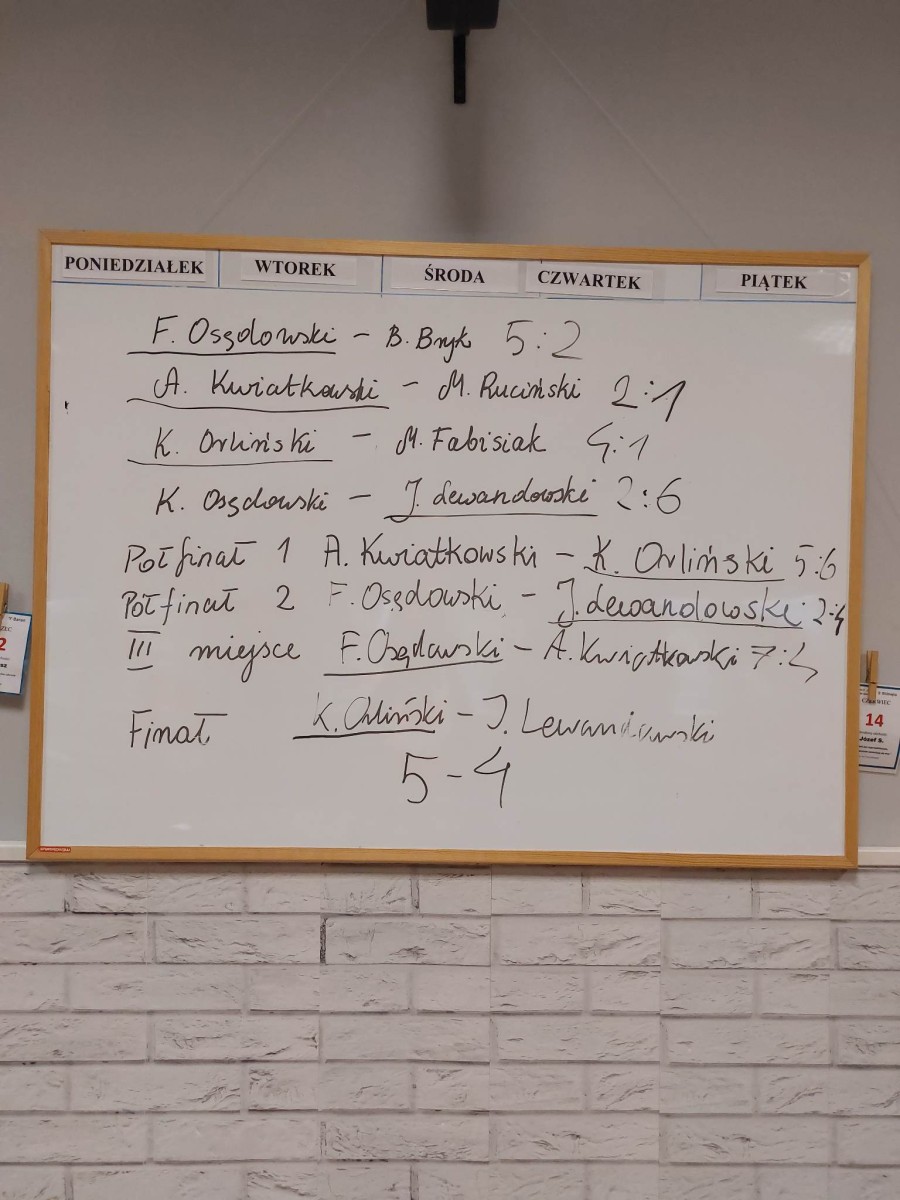 PONIEDZIAŁEK WTOREK ŚRODA CZWARTEK PIĄTEK
F. Osędowski - B. Bryk 5:2
A. Kwiatkowski - M. Ruciński 2:1
K. Orliński - M. Fabisiak 4:1
K. Osędowski - J. Lewandowski 2:6
Półfinał 1 A. Kwiatkowski - K. Orliński 5:6
Półfinał 2 F. Osędowski - J. Lewandowski 2:4
III miejsce F. Osędowski - A. Kwiatkowski 7:4
Finał K. Orliński - J. Lewandowski
5-4
2
14
Józef S.